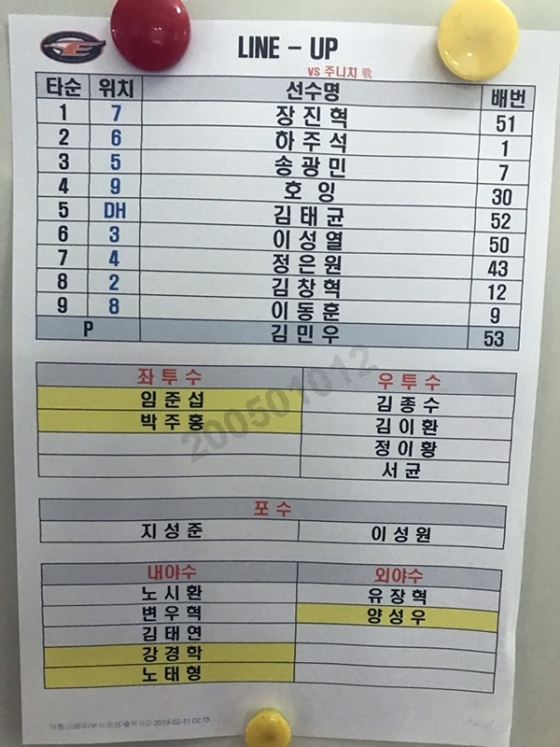 LINE - UP
vs 주니치 戰
타순 위치 선수명 배번
1 7 장진혁 51
2 6 하주석 1
3 5 송광민 7
4 9 호 잉 30
5 DH 김태균 52
6 3 이성열 50
7 4 정은원 43
8 2 김창혁 12
9 8 이동훈 9
P 김민우 53
좌투수 우투수
임준섭 김종수
박주홍 김이환
정이황
서균
포수
지성준 이성원
내야수 외야수
노시환 유장혁
변우혁 양성우
김태연
강경학
노태형
200501012
2019-02-11 02:13